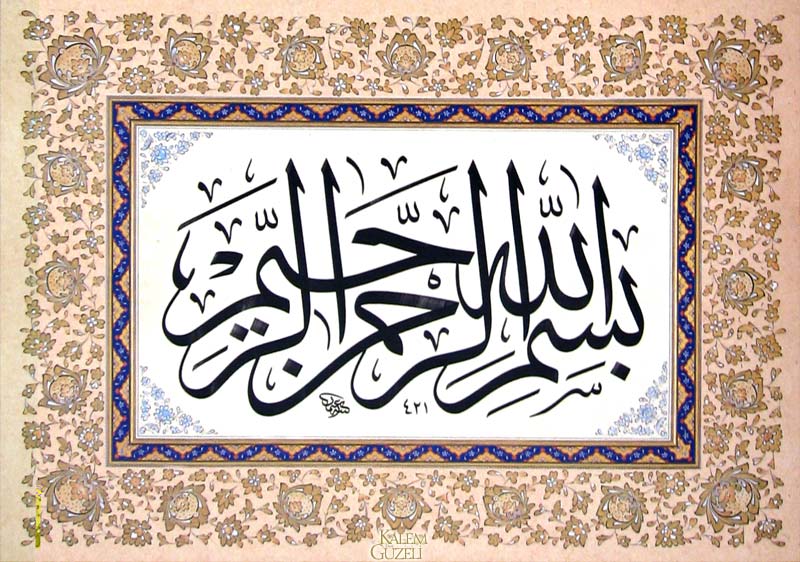 بسم الله الرحمن الرحيم
٤٢١
KALEM
GÜZELİ